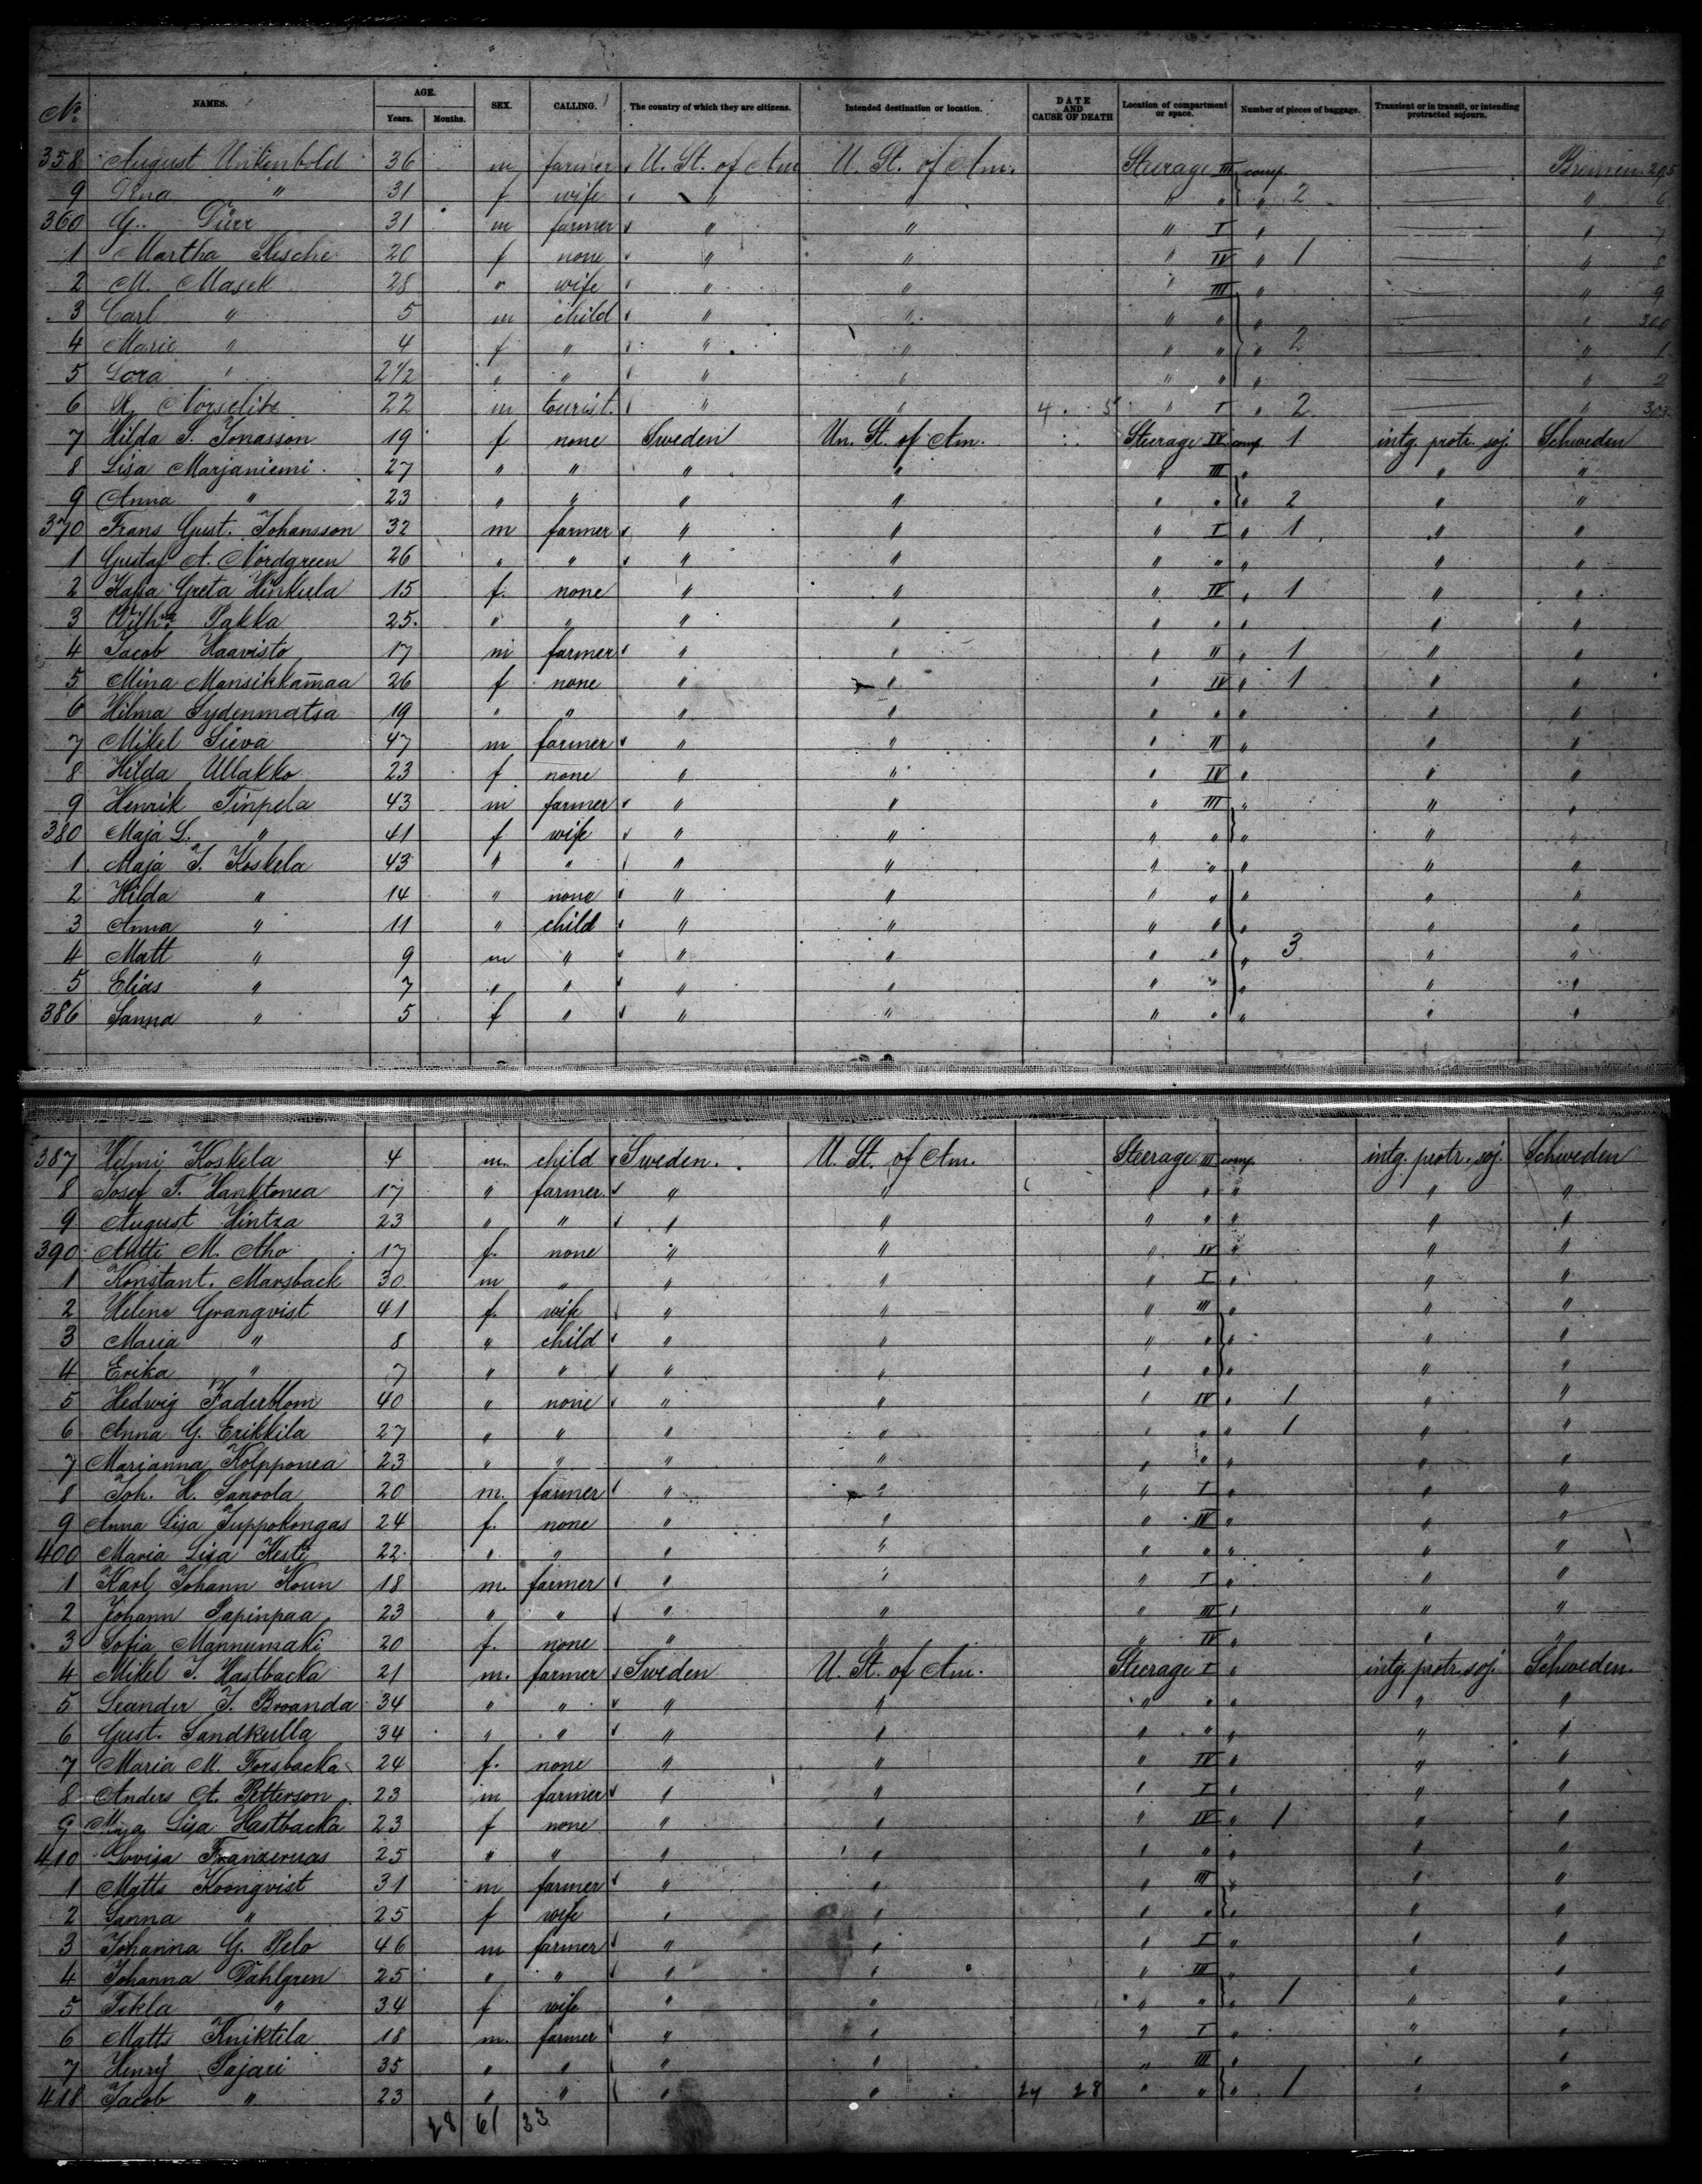 No. NAMES. AGE. Years. Months. SEX. CALLING. The country of which they are citizens. Intended destination or location. DATE AND CAUSE OF DEATH Location of compartment or space. Number of pieces of baggage. Transient or in transit, or intending protracted sojourn.
358 August 36 m farmer U. St. of Am U. St. of Am. Steerage III comp. Bremen 295
9 " 31 f wife " " " " " 2 " 6
360 G. Dürr 31 m farmer " " " I " " 7
1 Martha 20 f none " " " IV " 1 " 8
2 M. Masek 28 " wife " " " III " " 9
3 Carl " 5 m child " " " " " " 300
4 Marie " 4 f " " " " " " 2 " 1
5 Dora " 2 1/2 " " " " " " " " 2
6 22 m tourist " " 4 . 5 " I " 2 " 303
7 Hilda S. Jonasson 19 f none Sweden Un. St. of Am. Steerage IV comp. 1 intg. protr. soj. Schweden
8 Lisa Marjaniemi 27 " " " " " III " " "
9 Anna " 23 " " " " " " " 2 " "
370 Frans Gust. Johansson 32 m farmer " " " I " 1 " "
1 Gustaf A. Nordgreen 26 " " " " " " " " "
2 Kajsa Greta Hinkula 15 f. none " " " IV " 1 " "
3 Pakka 25 " " " " " " " " "
4 Jacob Haavisto 17 m farmer " " " II " 1 " "
5 Mina Mansikkamaa 26 f none " " " IV " 1 " "
6 Hilma Sydenmatsa 19 " " " " " " " " "
7 Mikel Sieva 47 m farmer " " " II " " "
8 Hilda Ullakko 23 f none " " " IV " " "
9 Henrik Tinpela 43 m farmer " " " III " " "
380 Maja L. " 41 f wife " " " " " " "
1 Maja S. Koskela 43 " " " " " " " " "
2 Hilda " 14 " none " " " " " " "
3 Anna " 11 " child " " " " " " "
4 Matt " 9 m " " " " " " 3 " "
5 Elias " 7 " " " " " " " " "
386 Sanna " 5 f " " " " " " " "
387 Helmi Koskela 4 m. child Sweden. U. St. of Am. Steerage III comp. intg. protr. soj. Schweden
8 Josef T. Hanktonea 17 " farmer " " " " " " "
9 August Hintza 23 " " " " " " " " "
390 Antti M. Aho 17 f. none " " " IV " " "
1 Konstant. Marsback 30 m " " " " I " " "
2 Helene Granqvist 41 f. wife " " " III " " "
3 Maria " 8 " child " " " " " " "
4 Erika " 7 " " " " " " " " "
5 Hedwig Faderblom 40 " none " " " IV " 1 " "
6 Anna G. Erikkila 27 " " " " " " " 1 " "
7 Marianna Kolpponea 23 " " " " " " " " "
8 Joh. H. Sanoola 20 m. farmer " " " I " " "
9 Anna Lisa Juppokongas 24 f. none " " " IV " " "
400 Maria Lisa Kesti 22 " " " " " " " " "
1 Karl Johann Koun 18 m. farmer " " " I " " "
2 Johann Papinpaa 23 " " " " " III " " "
3 Sofia Mannumaki 20 f. none " " " IV " " "
4 Mikel J. Hastbacka 21 m. farmer Sweden U. St. of Am. Steerage I " intg. protr. soj. Schweden.
5 Leander J. Broanda 34 " " " " " " " " "
6 Gust. Sandkulla 34 " " " " " " " " "
7 Maria M. Forsbacka 24 f. none " " " IV " " "
8 Anders A. Petterson 23 m farmer " " " I " " "
9 Maja Lisa Hastbacka 23 f none " " " IV " 1 " "
410 Lovisa 25 " " " " " " " " "
1 Matts Kronqvist 31 m farmer " " " III " " "
2 Sanna " 25 f wife " " " " " " "
3 Johanna G. Pelo 46 m farmer " " " I " " "
4 Johanna Dahlgren 25 " " " " " III " " "
5 Tekla " 34 f wife " " " " " 1 " "
6 Matts Kniktila 18 m. farmer " " " I " " "
7 Henry Pajari 35 " " " " " III " " "
418 Jacob " 23 " " " " 24 28 " " " 1 " "
28 61 33